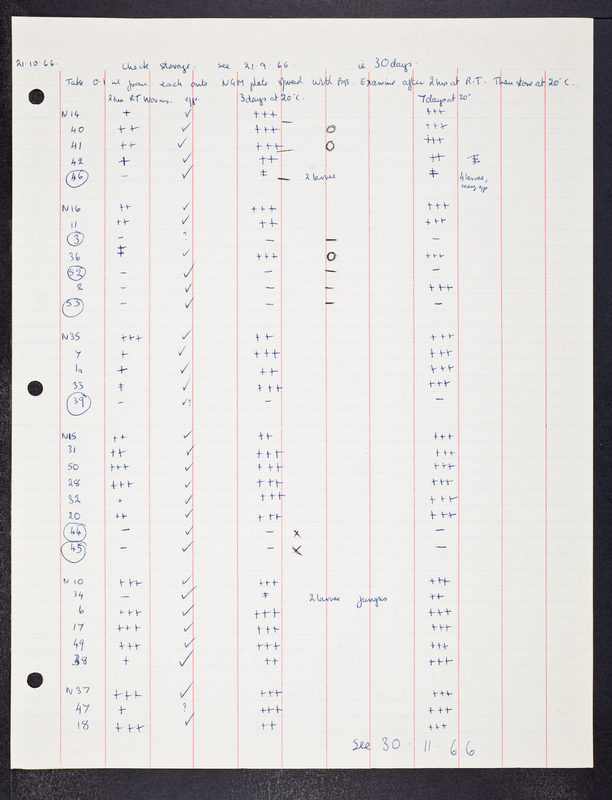 21.10.66. Check storage. see 21.9.66. ie 30 days.
Take 0.1 ml from each onto NGM plate spread with B/B. Examine after 2 hrs at R.T. Then store at 20°C.
2 hrs RT Worms. eggs 3 days at 20°C. 7 days at 20°
N14 + ✓ +++ — +++
40 ++ ✓ +++ O +++
41 ++ ✓ +++ — O +++
42 + ✓ ++ ++
46 — ✓ ± — 2 larvae ± 4 larvae, many eggs
N16 ++ ✓ +++ +++
11 ++ ✓ ++ +++
3 — ? — — —
36 ‡ ✓ +++ O +++
52 — ✓ — — —
2 — ✓ — — +++
53 — ✓ — — —
N35 +++ ✓ ++ +++
7 + ✓ +++ +++
1a + ✓ ++ +++
33 ± ✓ +++ +++
39 — ✓? — —
N15 ++ ✓ ++ +++
31 ++ ✓ +++ +++
50 +++ ✓ +++ +++
28 +++ ✓ +++ +++
32 + ✓ +++ +++
20 ++ ✓ +++ +++
44 — ✓ — x —
45 — ✓ — x —
N10 +++ ✓ +++ +++
34 — ✓ ± 2 larvae fungus ++
6 +++ ✓ +++ +++
17 +++ ✓ +++ +++
49 +++ ✓ +++ +++
38 + ✓ ++ +++
N37 +++ ✓ +++ +++
47 + ? +++ +++
18 +++ ✓ ++ +++
See 30.11.66